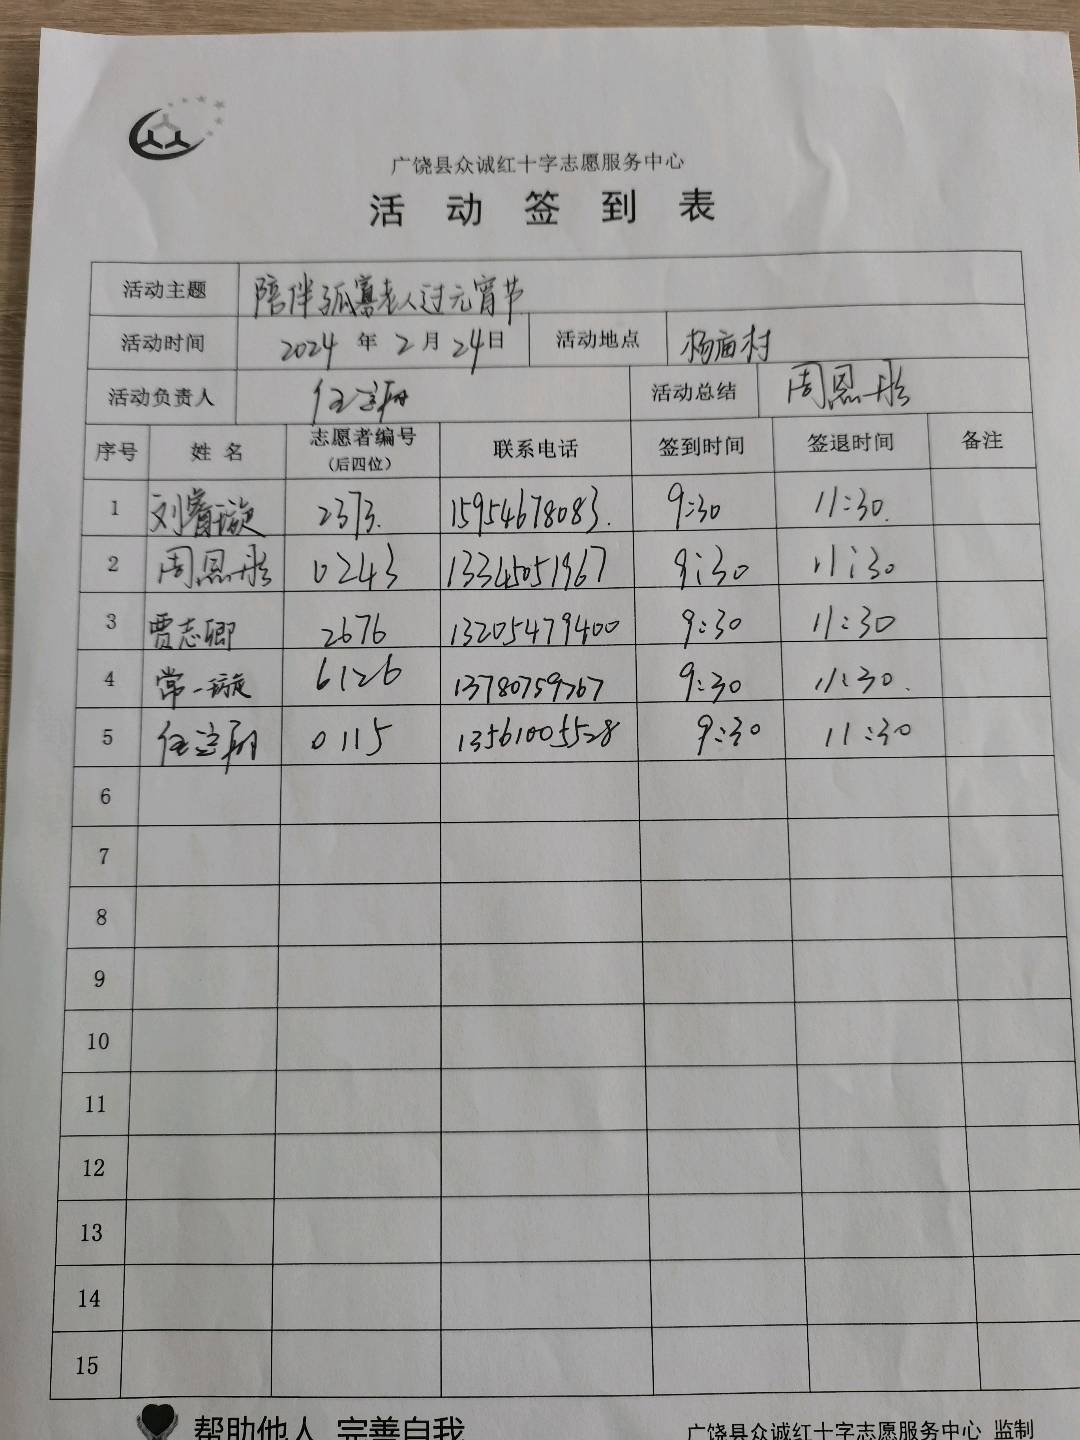 广饶县众诚红十字志愿服务中心
活动签到表
活动主题 陪伴孤寡老人过元宵节
活动时间 2024年2月24日 活动地点 杨庙村
活动负责人 活动总结 周恩彤
序号 姓名 志愿者编号（后四位） 联系电话 签到时间 签退时间 备注
1 刘睿璇 2373. 15954678083. 9:30 11:30.
2 周恩彤 0243 13345051967 9:30 11:30
3 贾志卿 2676 13205479400 9:30 11:30
4 常一璇 6126 13780759767 9:30 11:30.
5 0115 13561005528 9:30 11:30
6
7
8
9
10
11
12
13
14
15
帮助他人 完善自我 广饶县众诚红十字志愿服务中心 监制